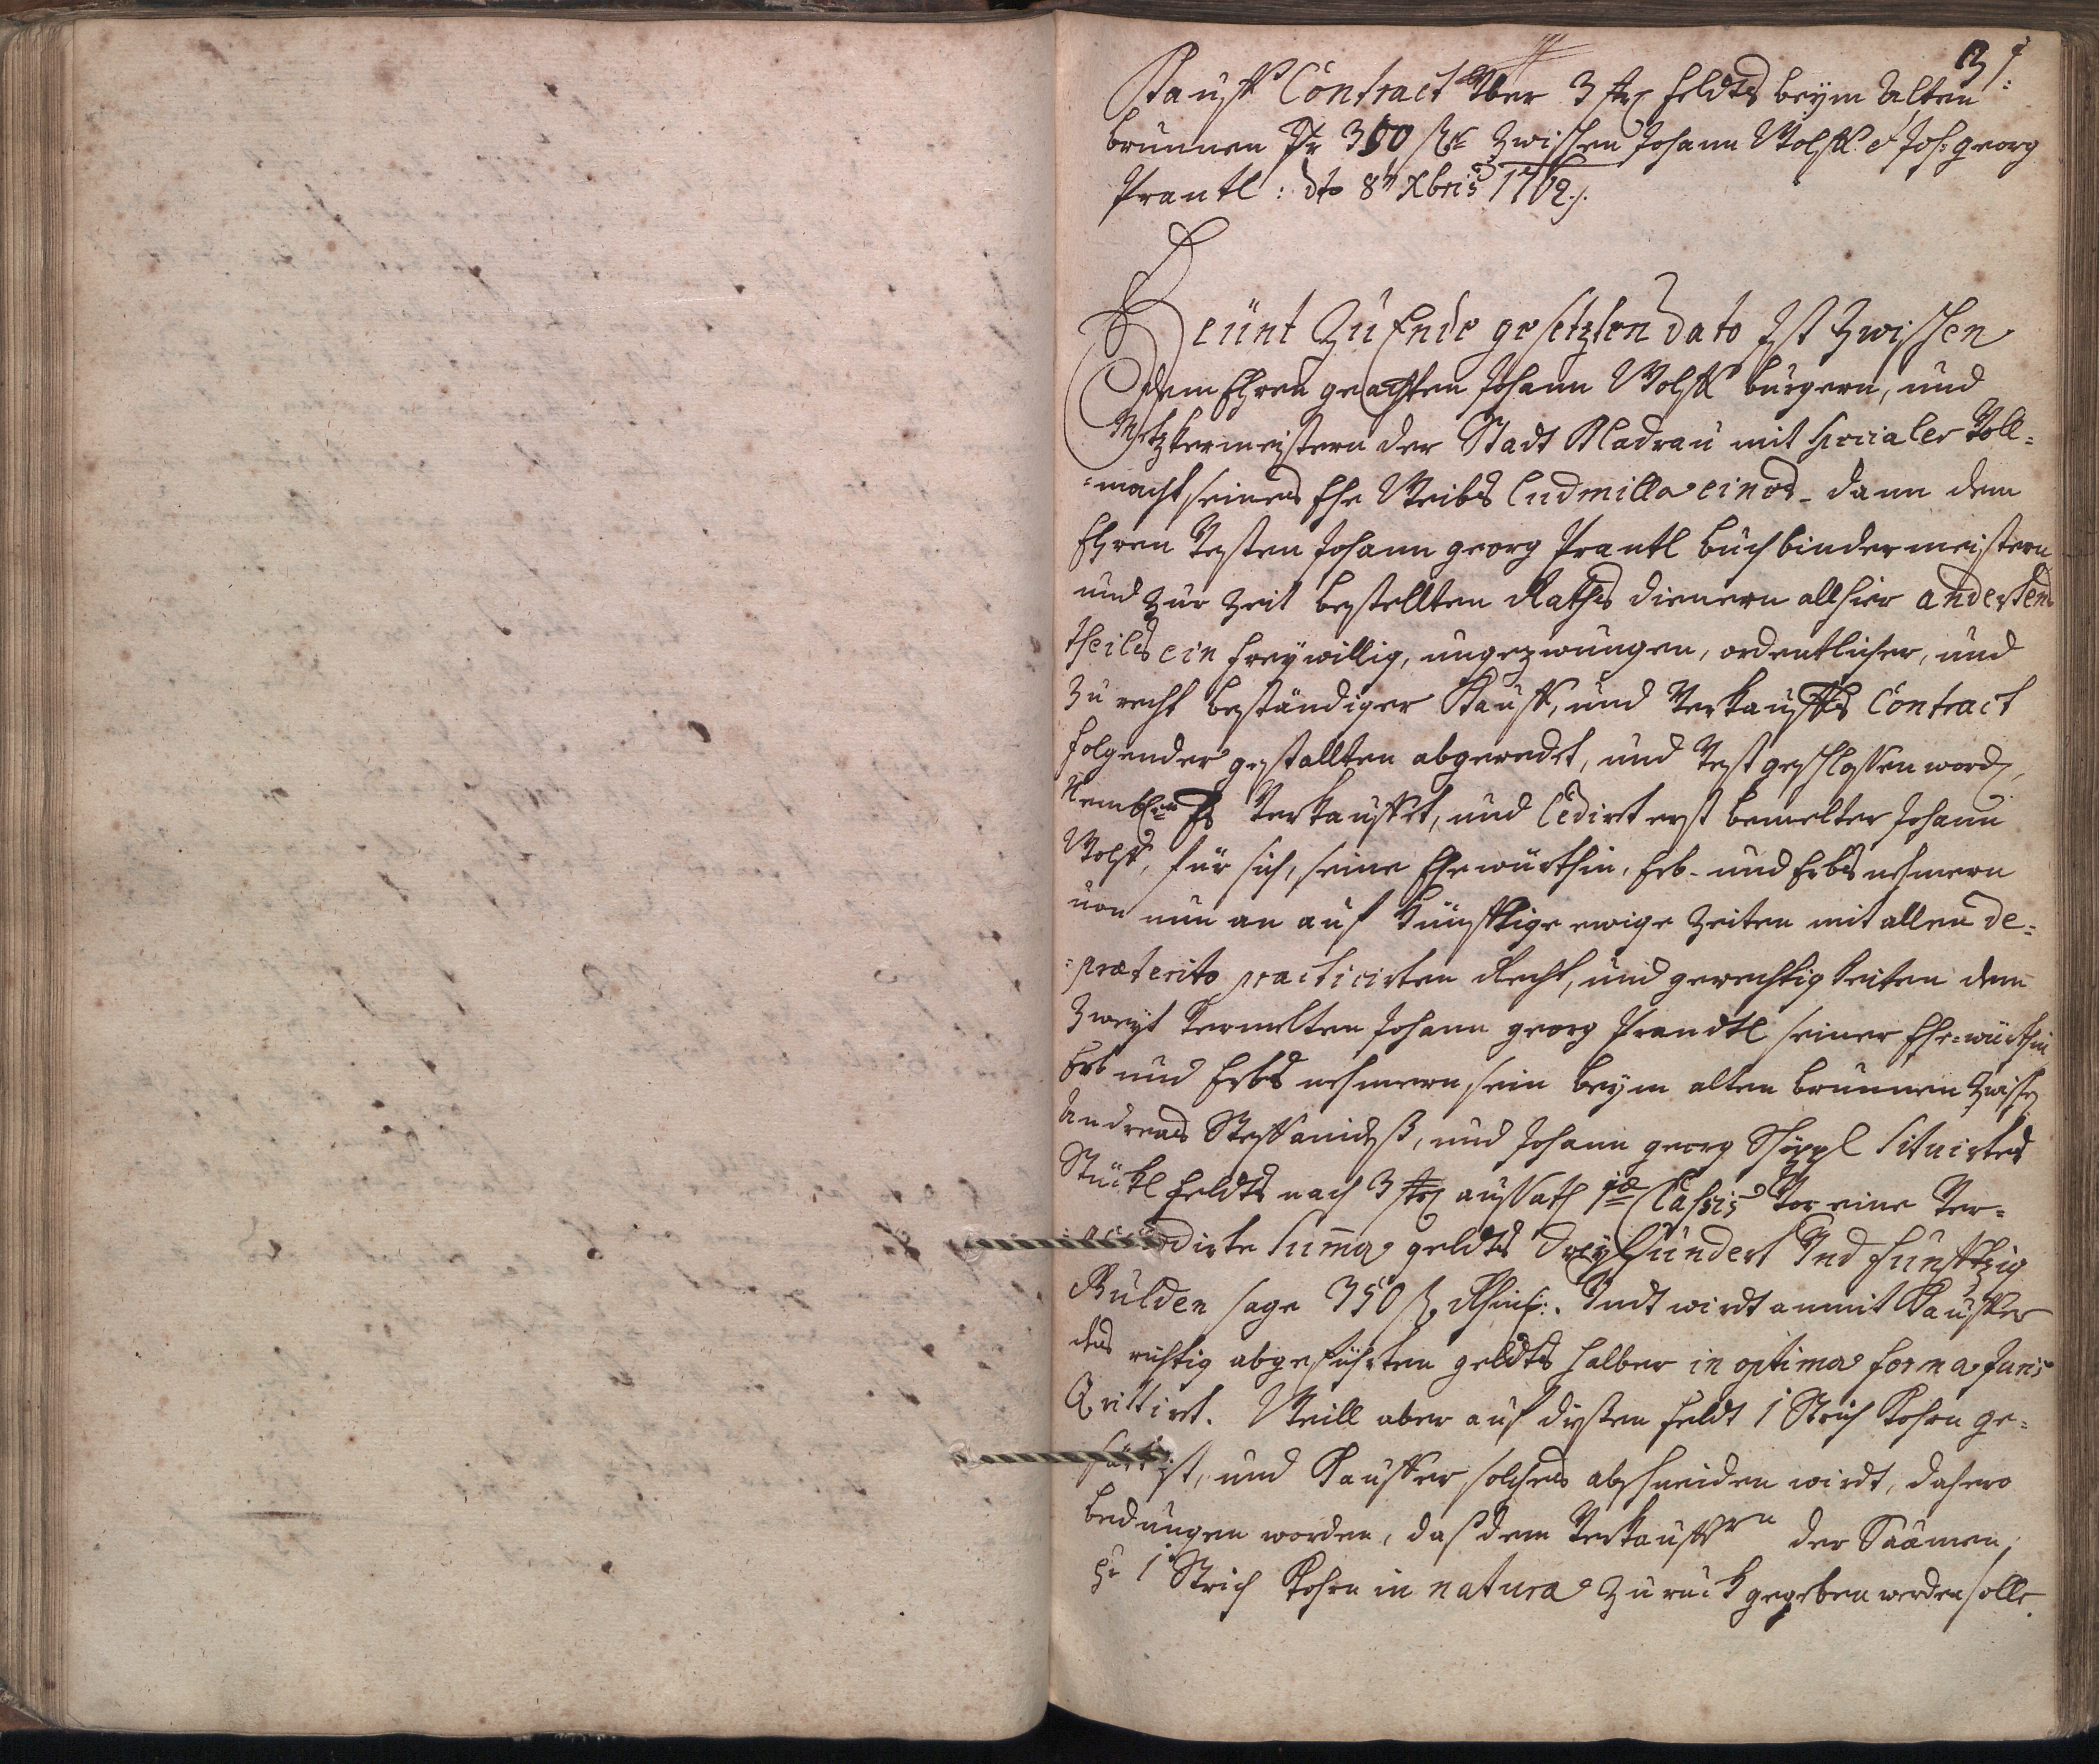 31
Kauff Contract Über 3 str: Feldts beÿm Alten
brunnen Pr 350 fl. Zwischen Johann Wolff et Joh: georg
Prantl: dto 8t Xbris 1762.
Heünt Zu Ende gesetzten dato Ist Zwischen
dem Ehren geachten Johann Wolff burgern, und
Metzkermeistern der Stadt Kladrau mit specialer Voll=
=macht seines Ehe Weibs Ludmilla eines- dann dem
Ehren Vesten Johann georg Prantl buchbindermeistern
und zur Zeit bestellten Raths dienern allhier anderten
theils ein freÿwillig, ungezwungen, ordentlicher, und
zu recht beständiger Kauff, und Verkauffs Contract
folgender gestallten abgeredt, und Vest geschlossen word,
Nemblich Es Verkauffet, und Cedirt erst bemelter Johann
Wolff, für sich, seine Ehewürthin, Erb- und Erbsnehmern
von nun an auf künfftige ewige Zeiten mit allen de=
=præterito practicirten Recht, und gerechtigkeiten dem
Zweÿt Vermelten Johann georg Prandtl seiner Ehe=würthin
Erb und Erbs nehmern, sein beÿm alten brunnen Zwischen
Andreas, und Johann georg situirtes
Stückl Feldts nach 3 str: aussath 1mæ Classis Vor eine Ver=
=accordirte Summa geldts dreÿhundert Und funfftzig
Gulden sage 350 fl. Rhein:. Undt wirdt anmit Kauffer
des richtig abgeführten geldts halber in optima forma Juris
Qvittirt. Weill aber auf disten Feldt 1 Strich Kohrn ge=
säet ist, und Kauffer solches abschneiden wirdt, dahero
bedungen worden, daß dem Verkauffern der Saamen
pr 1 Strich Kohrn in natura zuruck gegeben werden solle.